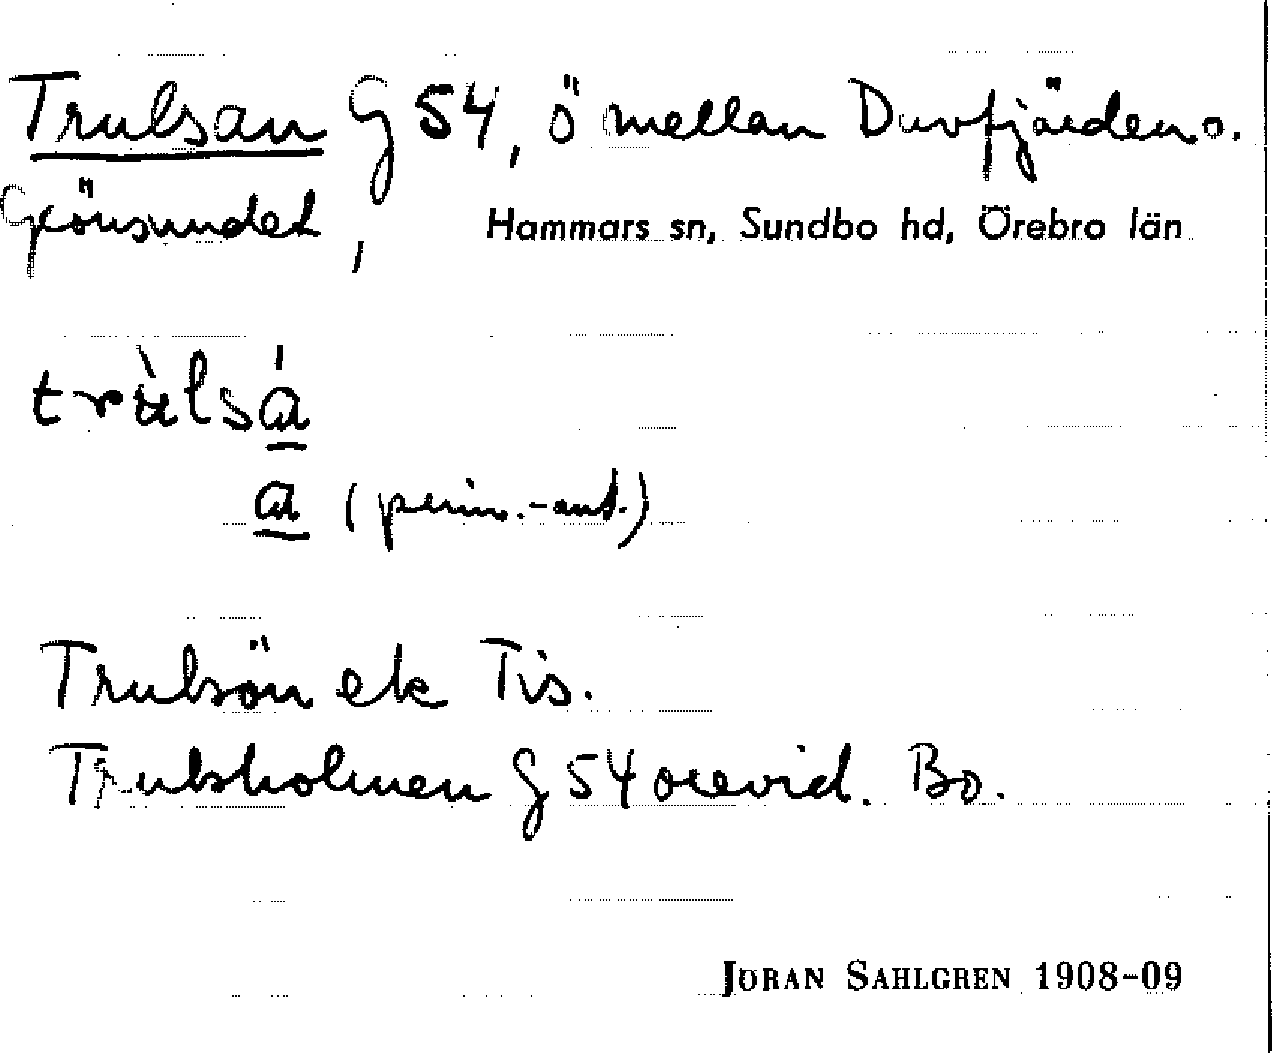 Trulsan G 54, ö mellan Duvfjärden o.
Grönsundet, Hammars sn, Sundbo hd, Örebro län
trùlsá
a (penin.-ant.)
Trulsön ek Tis.
Trulsholmen G 54 orevid. Bo.
JÖRAN SAHLGREN 1908-09